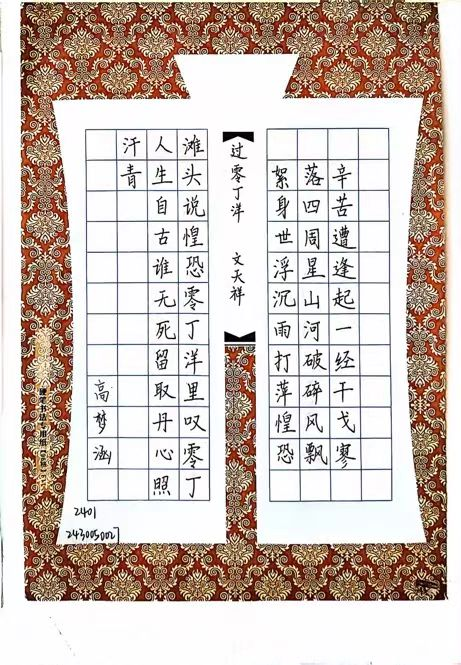 辛苦遭逢起一经干戈寥
落四周星山河破碎风飘
絮身世浮沉雨打萍惶恐
过零丁洋 文天祥
滩头说惶恐零丁洋里叹零丁
人生自古谁无死留取丹心照
汗青
高梦涵
2401
2430050027